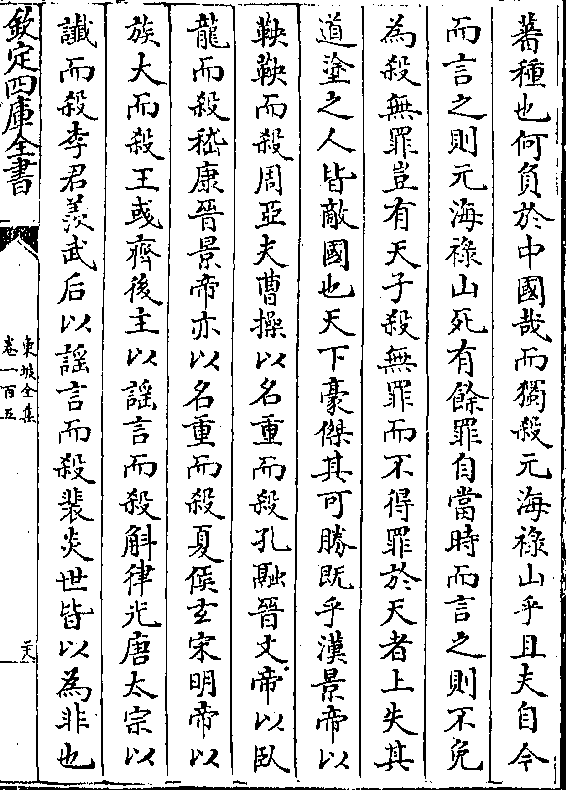 蕃種也何負於中國哉而獨殺元海祿山乎且夫自今
而言之則元海祿山死有餘罪自當時而言之則不免
為殺無罪豈有天子殺無罪而不得罪於天者上失其
道塗之人皆敵國也天下豪傑其可勝既乎漢景帝以
鞅鞅而殺周亞夫曹操以名重而殺孔融晉文帝以臥
龍而殺嵇康晉景帝亦以名重而殺夏侯玄宋明帝以
族大而殺王彧齊後主以謡言而殺斛律光唐太宗以
讖而殺李君羨武后以謡言而殺裴炎世皆以為非也
欽定四庫全書
東坡全集
卷一百五
天